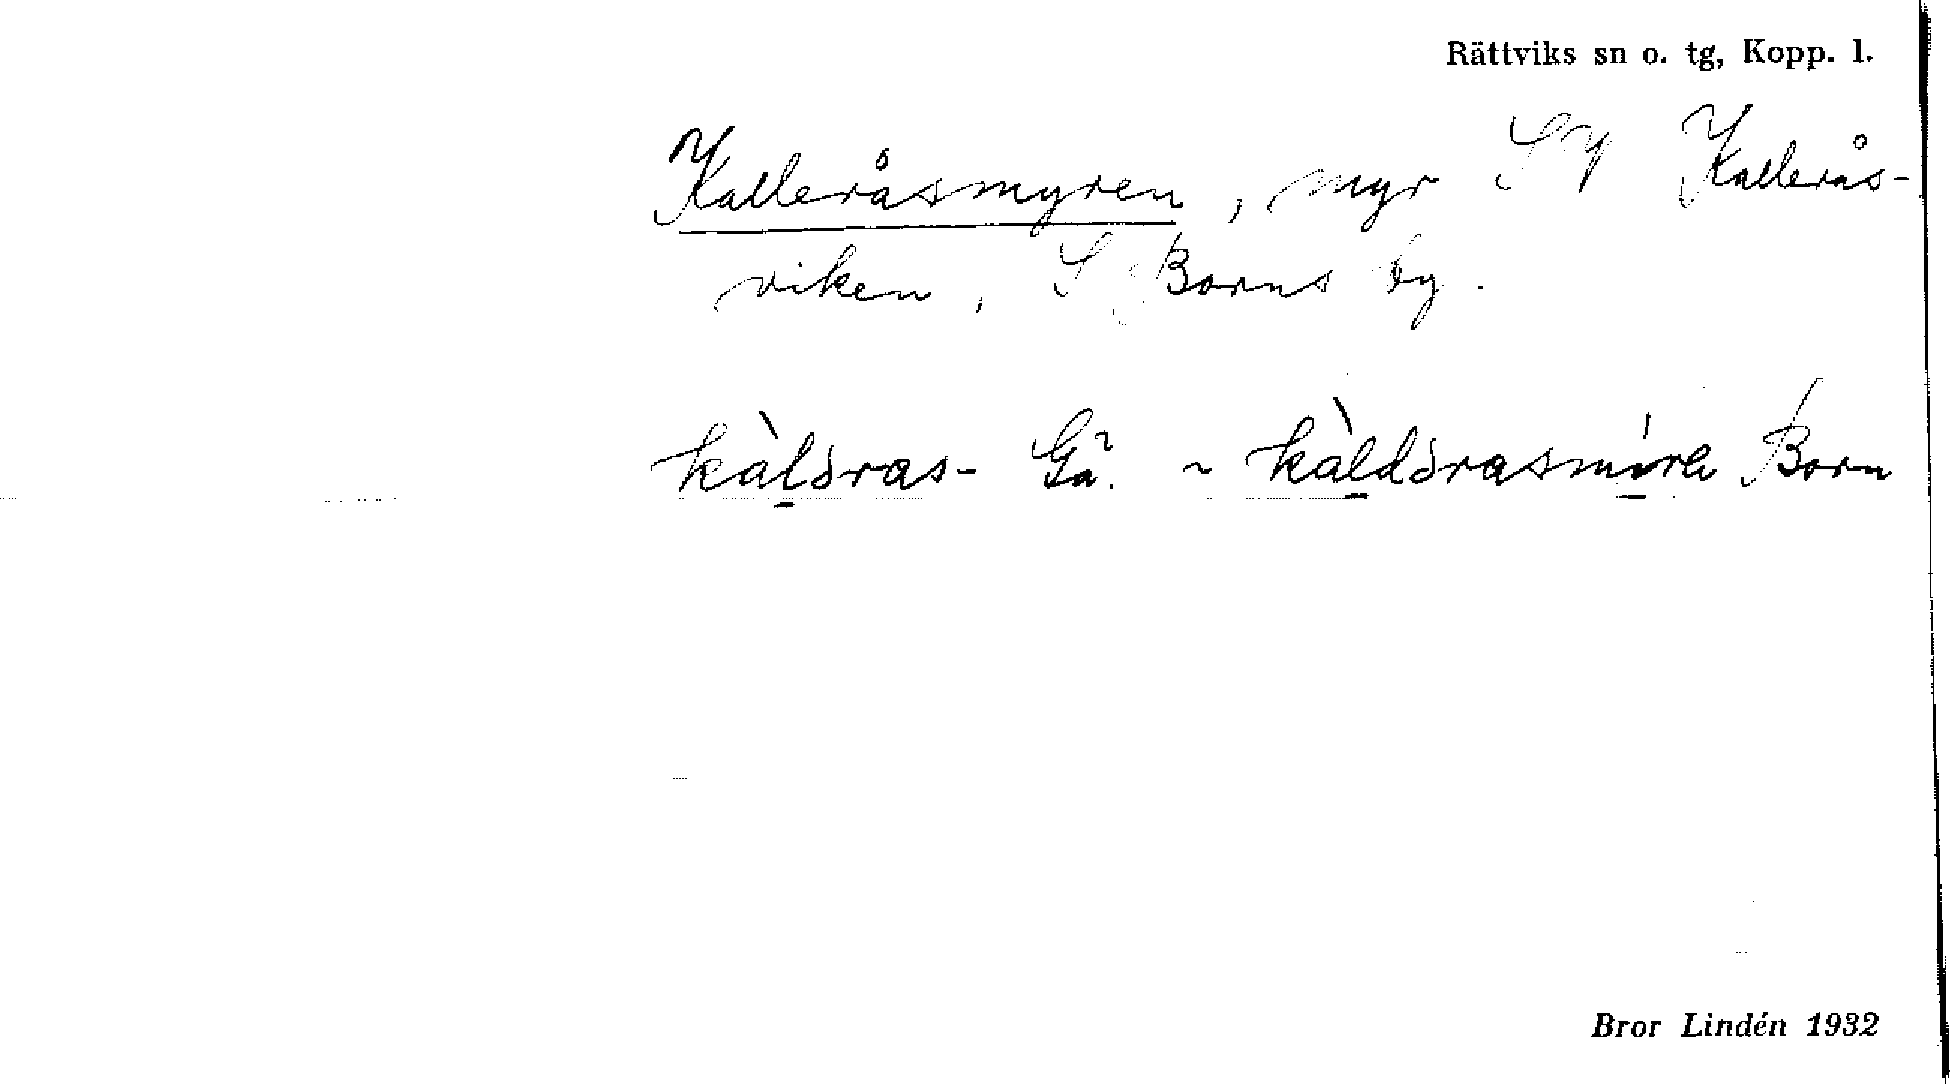 Rättviks sn o. tg, Kopp. l.
Kalleråsmyren, myr SV Kallerås-
viken, S Borns by.
kàlǝras- Gä. ~ kàldǝrasmı̇ra Born
Bror Lindén 1932